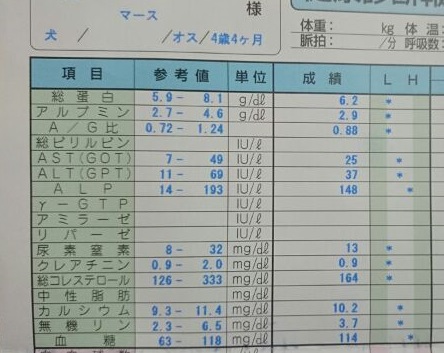 様
マース
犬 / /オス/4歳4ヶ月
体重: kg 体温:
脈拍: /分 呼吸数:
項目 参考値 単位 成績 L H
総蛋白 5.9- 8.1 g/dl 6.2 *
アルブミン 2.7- 4.6 g/dl 2.9 *
A/G比 0.72- 1.24 0.88 *
総ビリルビン IU/ℓ
AST(GOT) 7- 49 IU/ℓ 25 *
ALT(GPT) 11- 69 IU/ℓ 37 *
ALP 14- 193 IU/ℓ 148 *
γ-GTP IU/ℓ
アミラーゼ IU/ℓ
リパーゼ IU/ℓ
尿素窒素 8- 32 mg/dℓ 13 *
クレアチニン 0.9- 2.0 mg/dℓ 0.9 *
総コレステロール 126- 333 mg/dℓ 164 *
中性脂肪 mg/dℓ
カルシウム 9.3- 11.4 mg/dℓ 10.2 *
無機リン 2.3- 6.5 mg/dℓ 3.7 *
血糖 63- 118 mg/dℓ 114 *